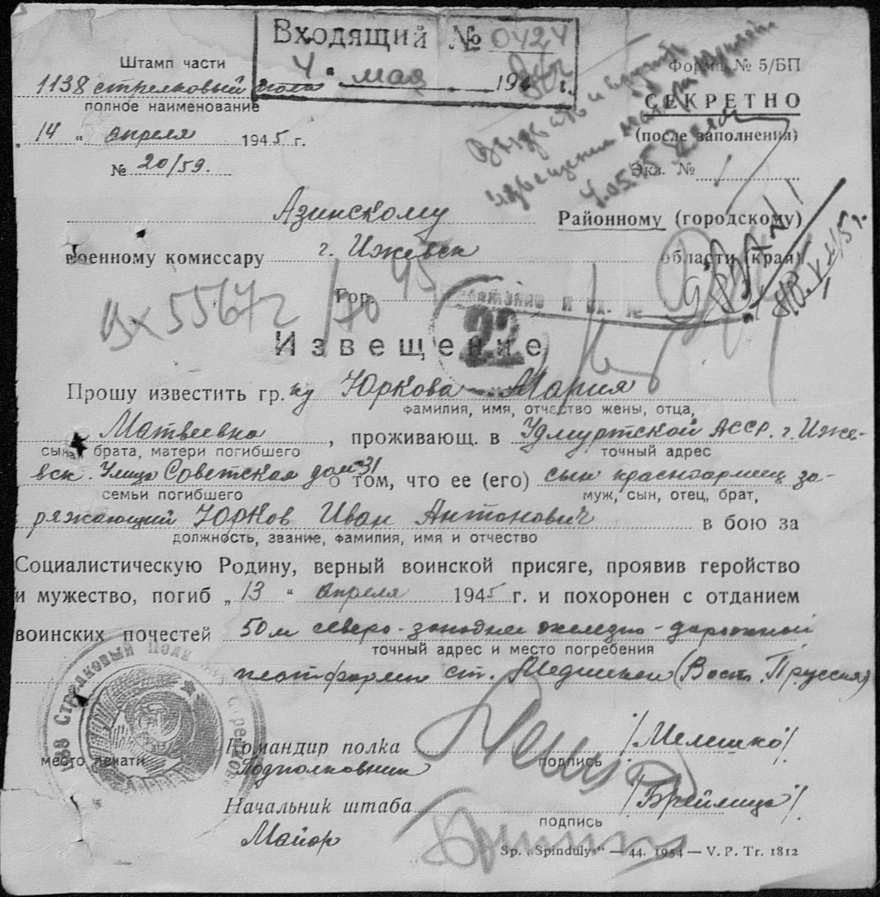 Входящий № 0424
4 " мая 194 г.
Штамп части
1138 стрелковый полк
полное наименование
"14 " апреля 1945 г.
№ 20/59.
Форма № 5/БП
СЕКРЕТНО
(после заполнения)
Экз. № 1
Азинскому Районному (городскому)
военному комиссару г. Ижевск области (края)
Гор.
Вх 5567г
22
Извещение
Прошу известить гр.ку Юркова Мария
фамилия, имя, отчество жены, отца,
Матвеевна, проживающ. в Удмуртской Асср. г. Иже-
сына, брата, матери погибшего точный адрес
вск. Улица Советская дом 31 о том, что ее (его) сын красноармеец за-
семьи погибшего муж, сын, отец, брат,
ряжающий Юрков Иван Антонович в бою за
должность, звание, фамилия, имя и отчество
Социалистическую Родину, верный воинской присяге, проявив геройство
и мужество, погиб „13 " апреля 1945 г. и похоронен с отданием
воинских почестей 50м северо-западнее железно-дорожной
точный адрес и место погребения
платформы ст. Медникен (Вост. Пруссия)
1138 Стрелковый Полк
место печати
Командир полка /Мелешко/
Подполковник подпись
Начальник штаба
Майор подпись
Sp. „Spindulys" — 44. 1954 — V. P. Tr. 1812